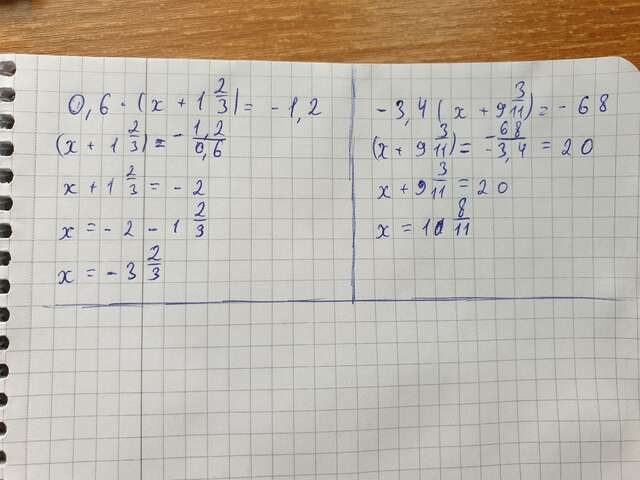 0,6 · (x + 1 2/3) = - 1,2
(x + 1 2/3) = - 1,2/0,6
x + 1 2/3 = - 2
x = - 2 - 1 2/3
x = - 3 2/3
-3,4 ( x + 9 3/11) = - 68
(x + 9 3/11) = -68/-3,4 = 20
x + 9 3/11 = 20
x = 10 8/11